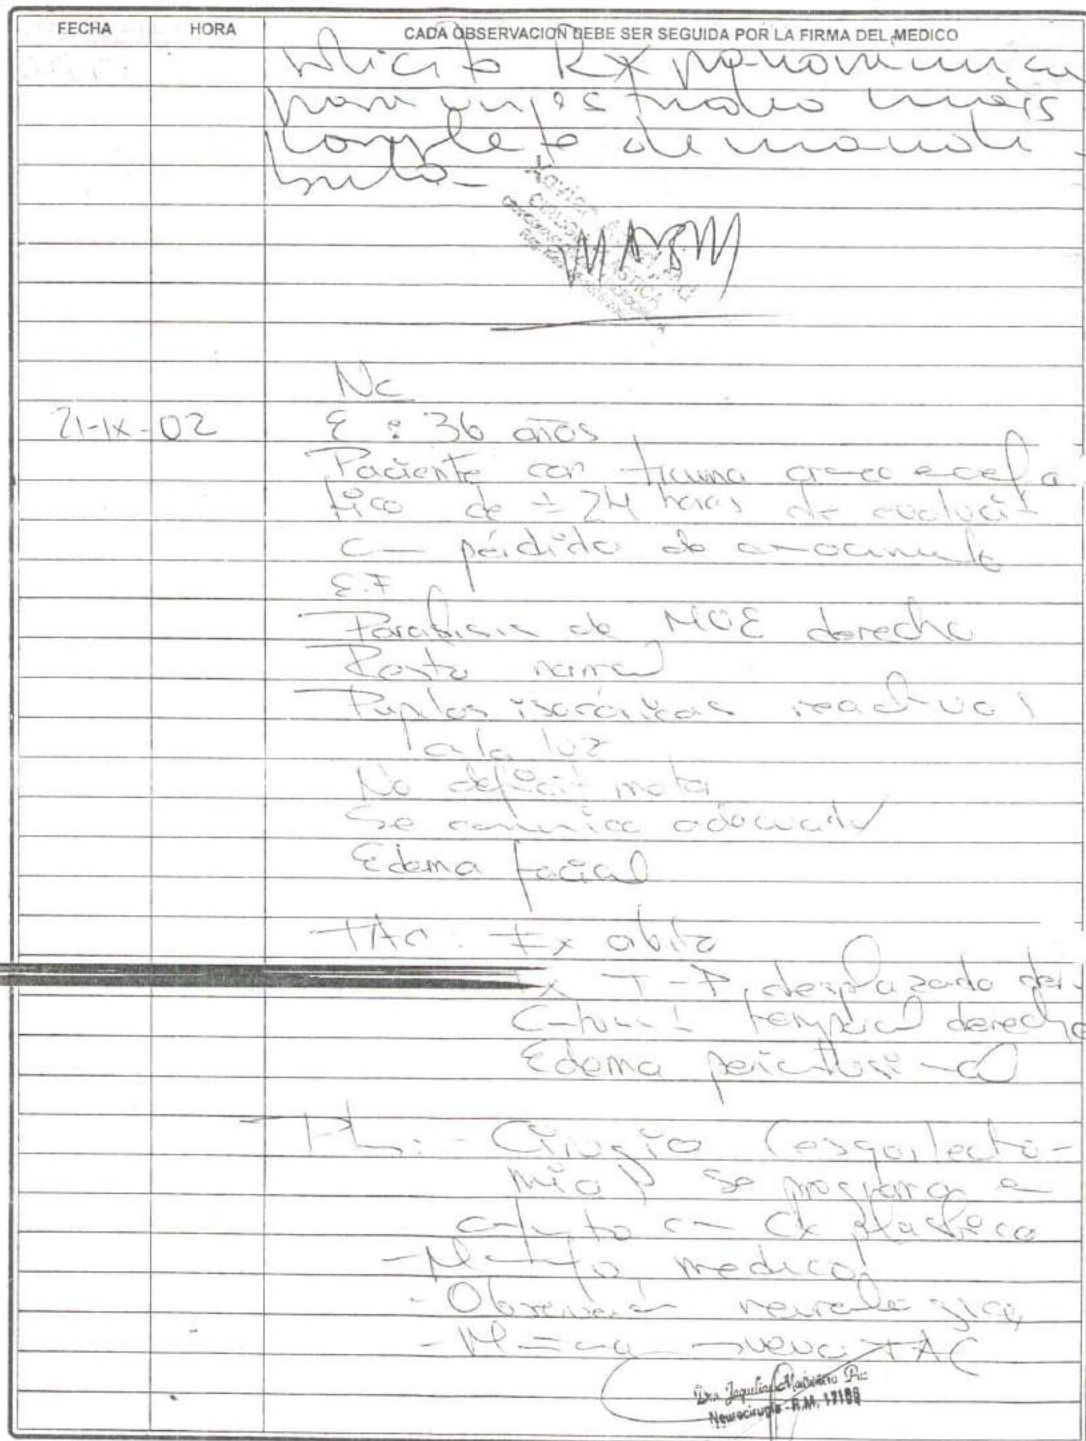 FECHA HORA CADA OBSERVACION DEBE SER SEGUIDA POR LA FIRMA DEL MEDICO
Rx panoramica
para un estudio más
completo de mandi-
bula-
Nc
21-IX-02 E : 36 años
Paciente con trauma craneoencefa
lico de ± 24 horas de evolución
con pérdida de conocimiento
E.F
Paralisis de MOE derecho
Resto normal
Pupilas isocóricas reactivas
a la luz
No deficit motor
Se comunica
Edema facial
TAC: Fx orbita
Fx T-P, desplazada
temporal derecha
Edema
PL: - Cirugía (esquilecto-
mia) Se programa en
conjunto con Cx plastica
- medico
- Observación neurologica
- Mañana nueva TAC
Dra. Jaqueline
Neurocirugía - R.M. 17188